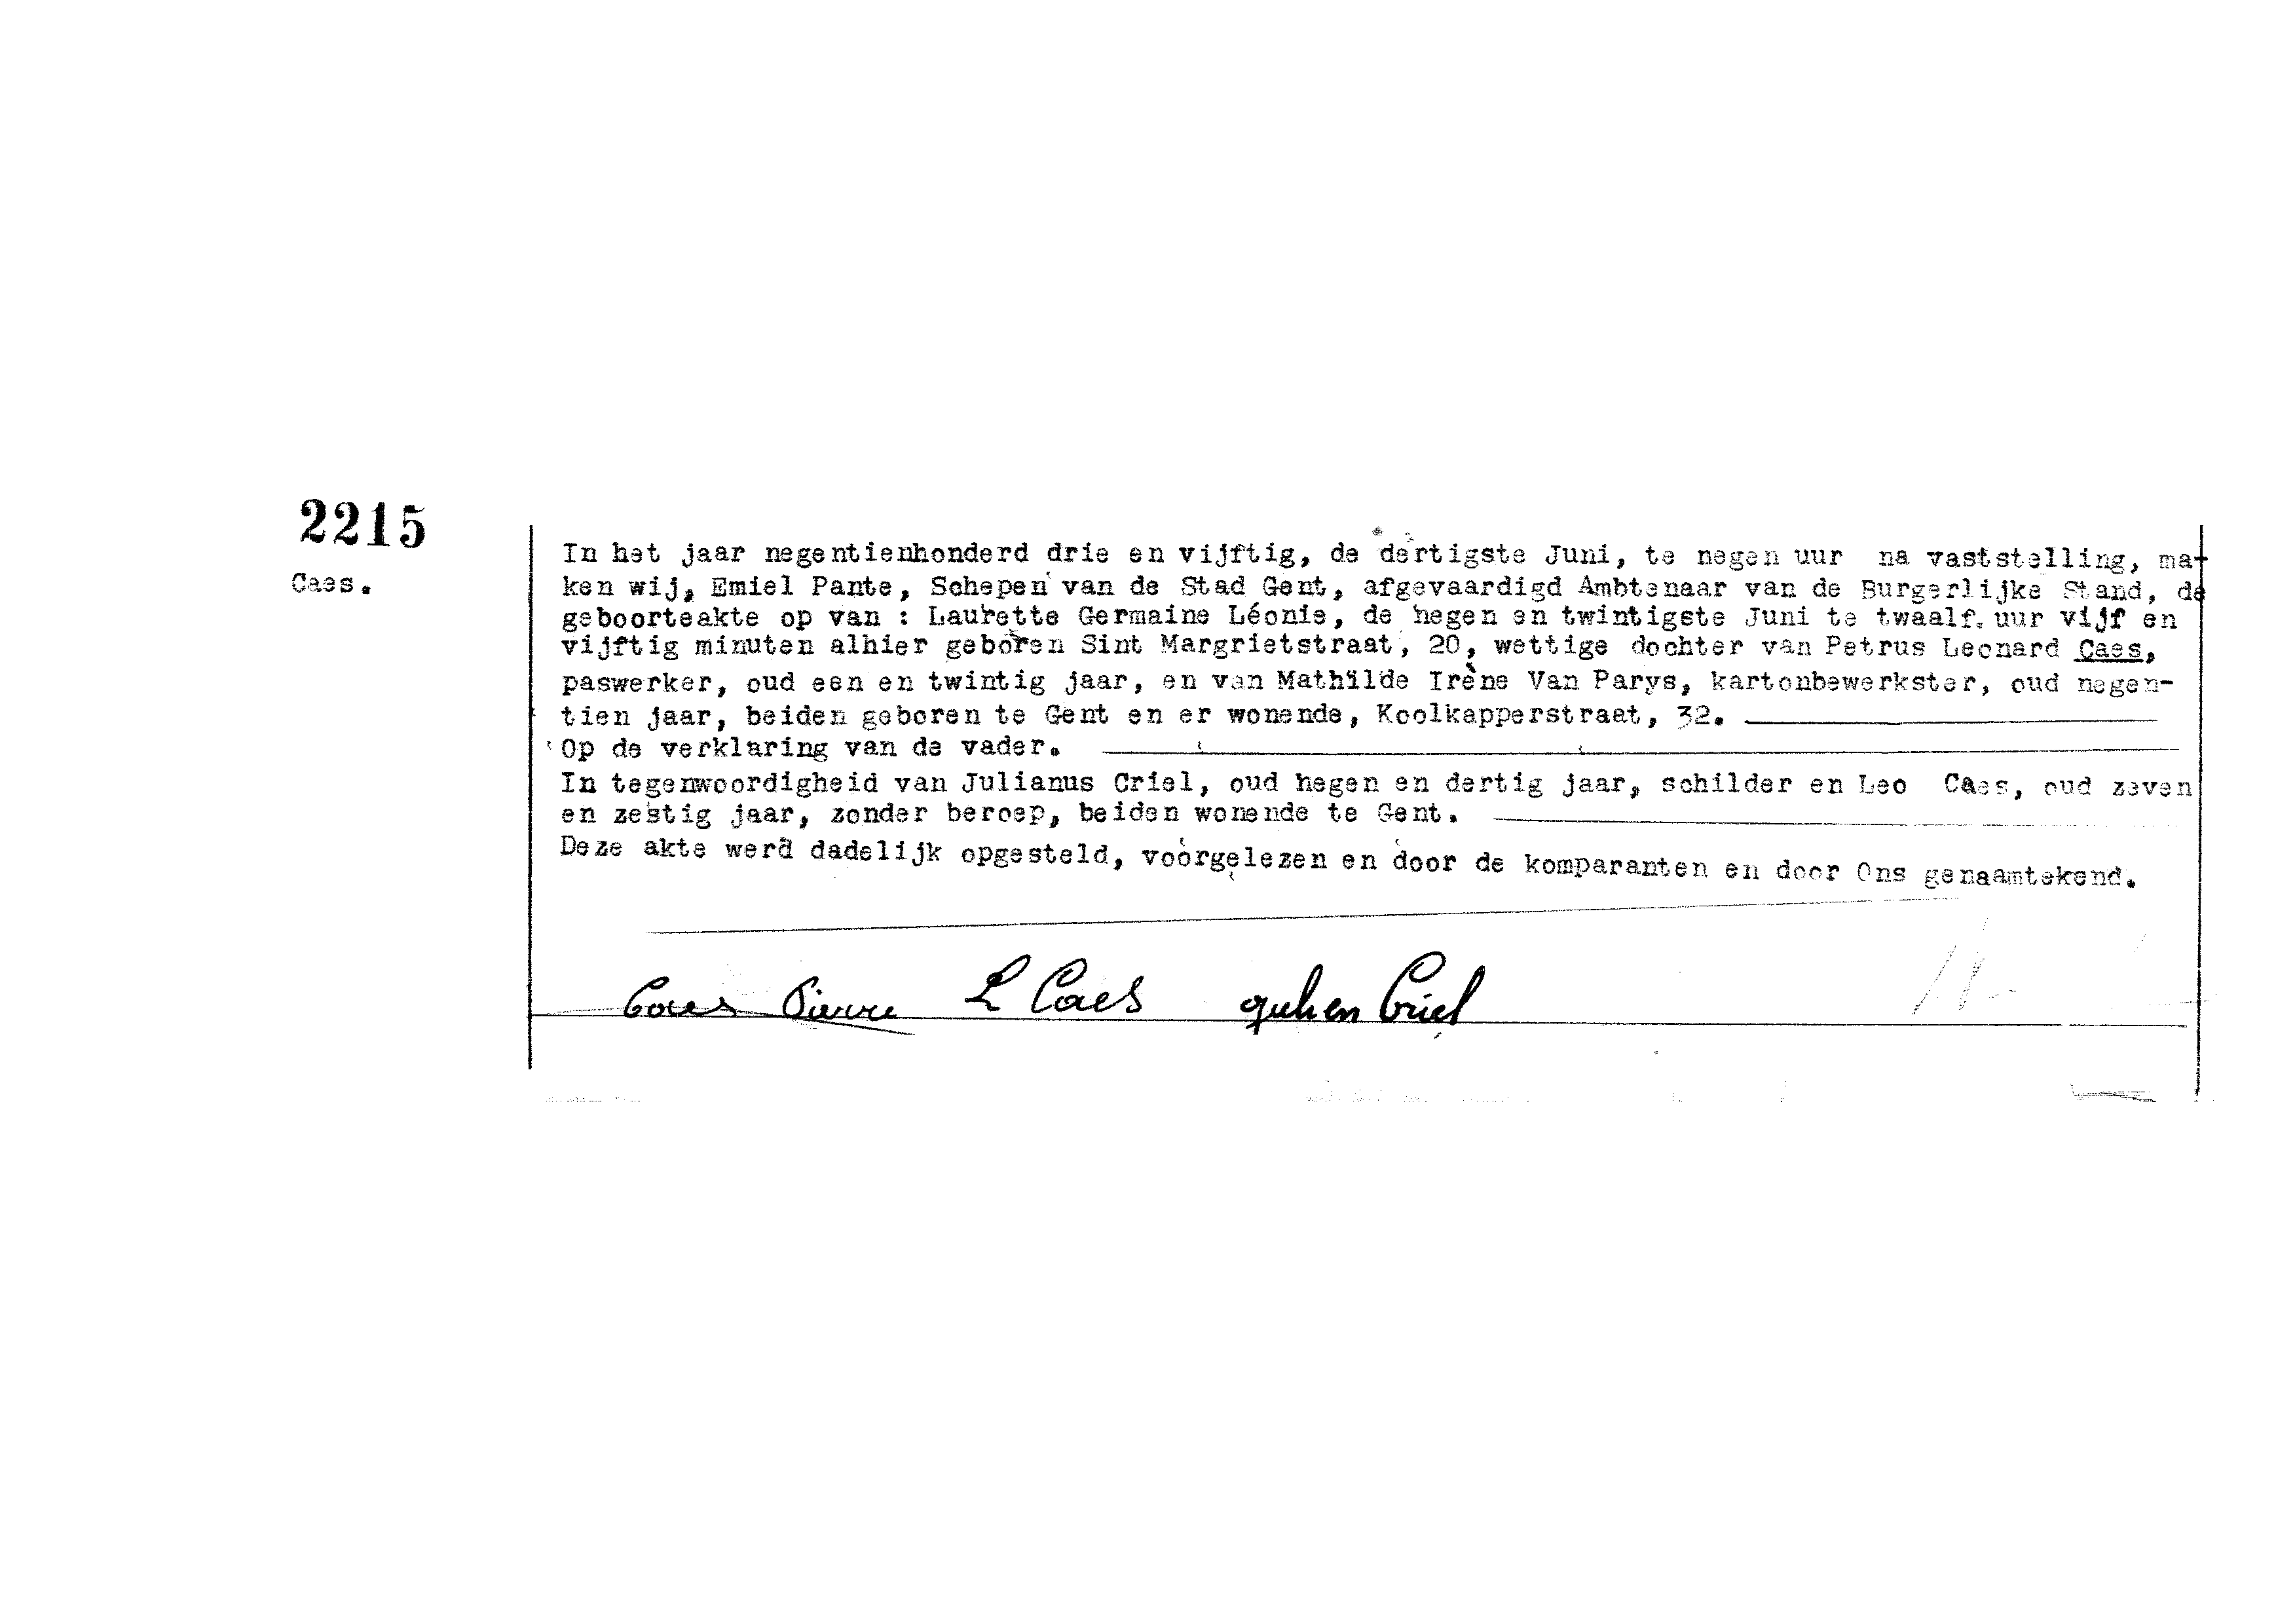 2215
Caes.
In het jaar negentienhonderd drie en vijftig, de dertigste Juni, te negen uur na vaststelling, ma-
ken wij, Emiel Pante, Schepen van de Stad Gent, afgevaardigd Ambtenaar van de Burgerlijke Stand, de
geboorteakte op van : Laurette Germaine Léonie, de negen en twintigste Juni te twaalf uur vijf en
vijftig minuten alhier geboren Sint Margrietstraat, 20, wettige dochter van Petrus Leonard Caes,
paswerker, oud een en twintig jaar, en van Mathilde Irène Van Parys, kartonbewerkster, oud negen-
tien jaar, beiden geboren te Gent en er wonende, Koolkapperstraat, 32.
Op de verklaring van de vader.
In tegenwoordigheid van Julianus Criel, oud negen en dertig jaar, schilder en Leo Caes, oud zeven
en zestig jaar, zonder beroep, beiden wonende te Gent.
Deze akte werd dadelijk opgesteld, voorgelezen en door de komparanten en door Ons genaamtekend.
Caes Pierre L Caes Julien Criel